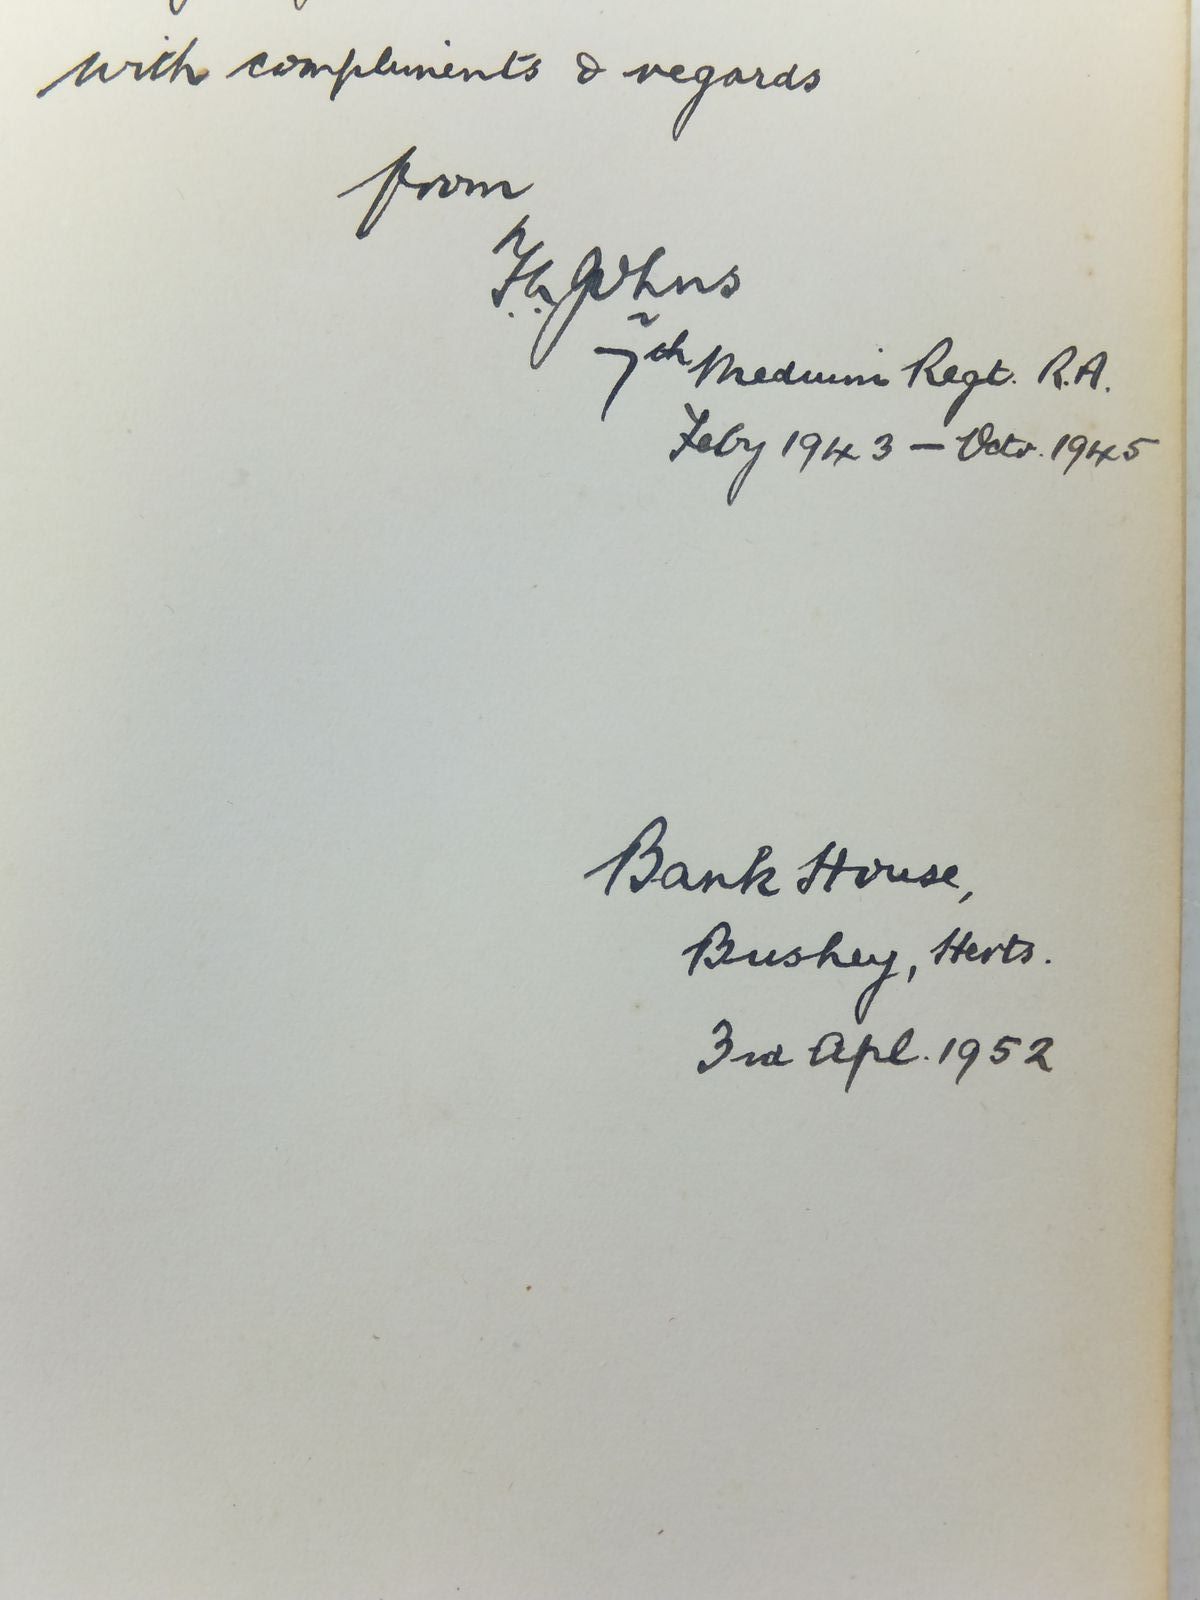 with compliments & regards
from
Johns
7th Medium Regt. R.A.
Feby 1943 — Octr. 1945
Bank House,
Bushey, Herts.
3rd Apl. 1952